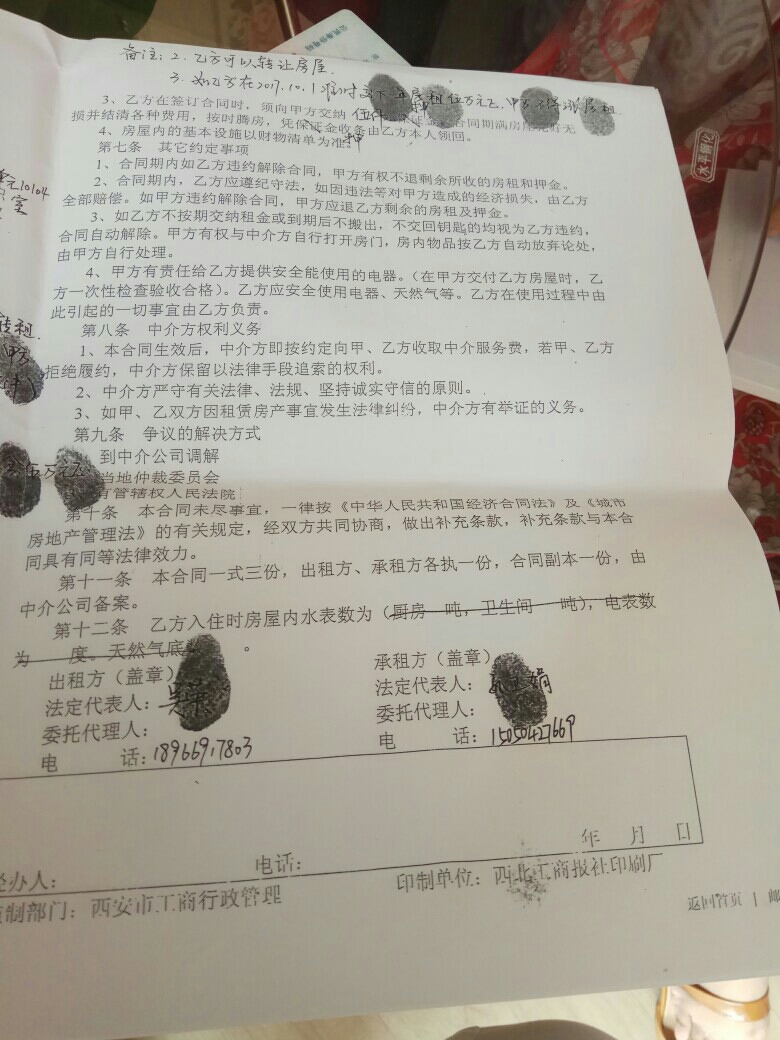 备注：2．乙方可以转让房屋．
3．如乙方在2017.10.1 年房租伍万元正．甲方不得涨房租
3、乙方在签订合同时，须向甲方交纳
损并结清各种费用，按时腾房，凭保证金收条由乙方本人领回。
4、房屋内的基本设施以财物清单为准
押
第七条 其它约定事项
1、合同期内如乙方违约解除合同，甲方有权不退剩余所收的房租和押金。
2、合同期内，乙方应遵纪守法，如因违法等对甲方造成的经济损失，由乙方
全部赔偿。如甲方违约解除合同，甲方应退乙方剩余的房租及押金。
3、如乙方不按期交纳租金或到期后不搬出，不交回钥匙的均视为乙方违约，
合同自动解除。甲方有权与中介方自行打开房门，房内物品按乙方自动放弃论处，
由甲方自行处理。
4、甲方有责任给乙方提供安全能使用的电器。（在甲方交付乙方房屋时，乙
方一次性检查验收合格）。乙方应安全使用电器、天然气等。乙方在使用过程中由
此引起的一切事宜由乙方负责。
第八条 中介方权利义务
1、本合同生效后，中介方即按约定向甲、乙方收取中介服务费，若甲、乙方
拒绝履约，中介方保留以法律手段追索的权利。
2、中介方严守有关法律、法规、坚持诚实守信的原则。
3、如甲、乙双方因租赁房产事宜发生法律纠纷，中介方有举证的义务。
第九条 争议的解决方式
到中介公司调解
当地仲裁委员会
有管辖权人民法院
第十条 本合同未尽事宜，一律按《中华人民共和国经济合同法》及《城市
房地产管理法》的有关规定，经双方共同协商，做出补充条款，补充条款与本合
同具有同等法律效力。
第十一条 本合同一式三份，出租方、承租方各执一份，合同副本一份，由
中介公司备案。
第十二条 乙方入住时房屋内水表数为（厨房 吨，卫生间 吨），电表数
为 度。天然气底 。
出租方（盖章） 承租方（盖章）
法定代表人： 法定代表人： 娟
委托代理人： 委托代理人：
电 话：18966917803 电 话：15050427669
年 月 日
经办人： 电话：
监制部门：西安市工商行政管理 印制单位：西北工商报社印刷厂
返回首页 | 邮
10104
室
转租
伍万元正
水手钢化